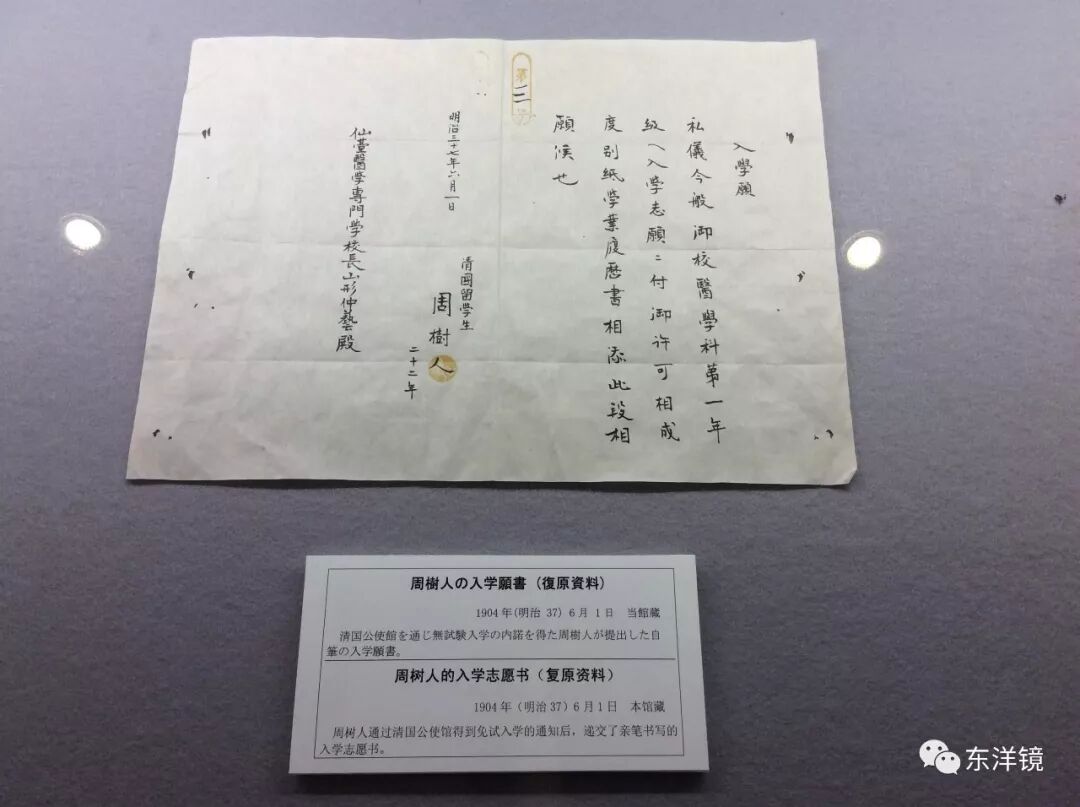 入學願
私儀今般御校醫學科第一年
級ヘ入学志願ニ付御許可相成
度別紙学業履歴書相添此段相
願候也
第三号
明治三十七年六月一日
清國留学生
周樹人
二十二年
仙臺醫学専門学校長山形仲藝殿
周樹人の入学願書（復原資料）
1904年(明治 37) 6月 1日 当館蔵
清国公使館を通じ無試験入学の内諾を得た周樹人が提出した自
筆の入学願書。
周树人的入学志愿书（复原资料）
1904年（明治37）6月1日 本馆藏
周树人通过清国公使馆得到免试入学的通知后，递交了亲笔书写的
入学志愿书。
东洋镜